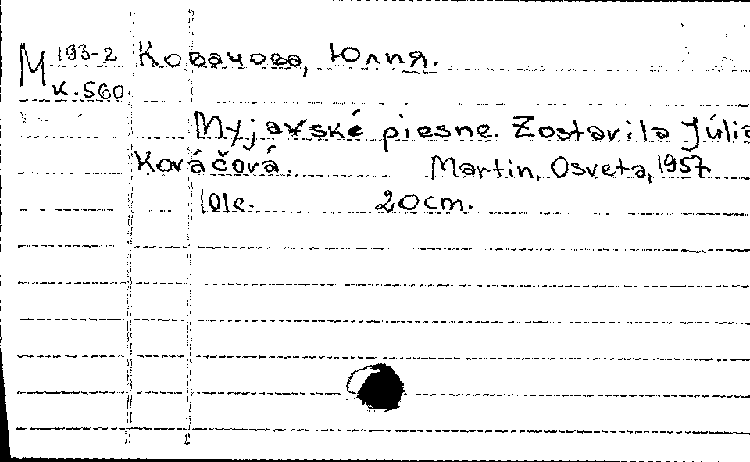 М 193-2 Ковачова, Юлия.
к. 560
Myjavské piesne. Zostavila Júlia
Kováčová. Martin, Osveta, 1957
101c. 20cm.